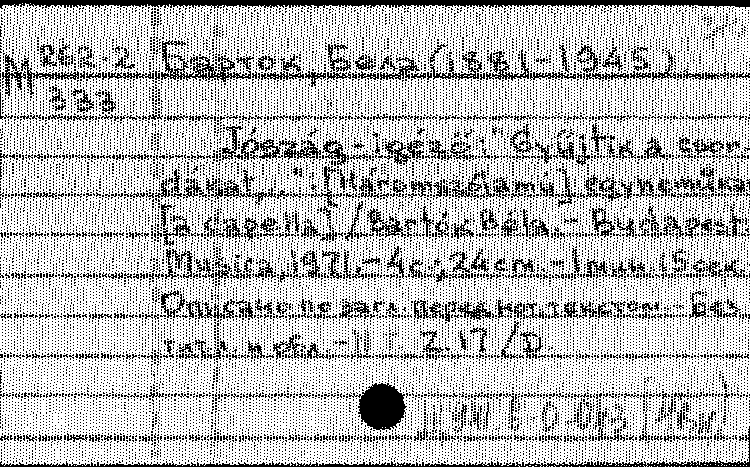 М 262-2 Барток, Бела (1881-1945)
333
Jószág-igéző: "Gyűjtik a csor-
dákat,..." : [Háromszólamú] egyneműkar
[a capella] / Bartók Béla. - Budapest:
Musica, 1971. - 4с.; 24см. - 1 мин 15 сек.
Описано по загл. перед нот. текстом. - Без
тит. л. и обл. - Z.17/D